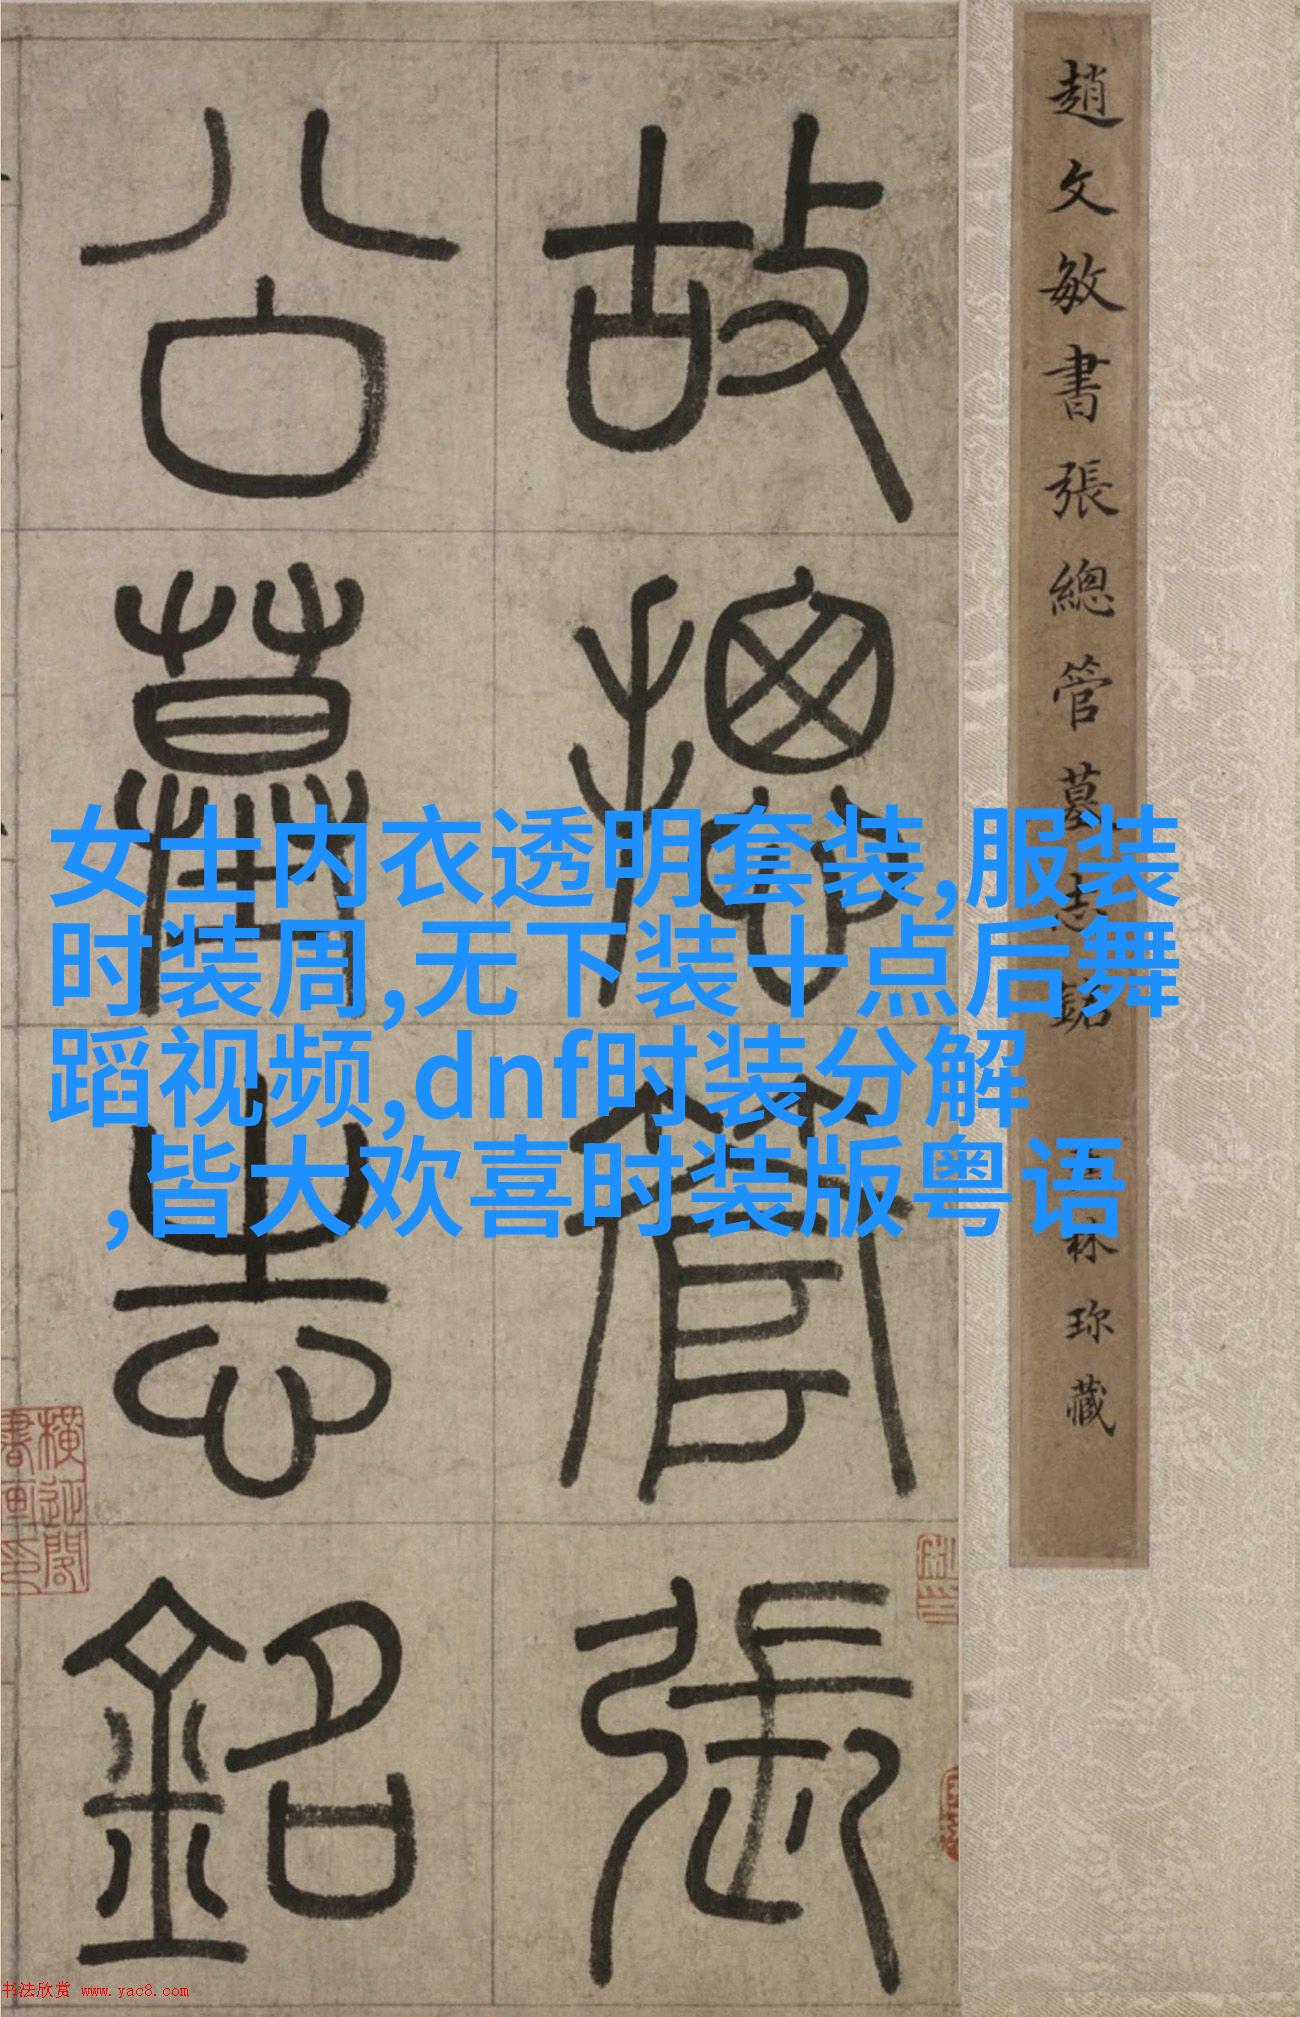 趙文敏書張總管墓志銘
珍藏
故揔管張
公墓志銘
女士内衣透明套装,服装
时装周,无下装十点后舞
蹈视频,dnf时装分解
,皆大欢喜时装版粤语
书法欣赏 www.yac8.com